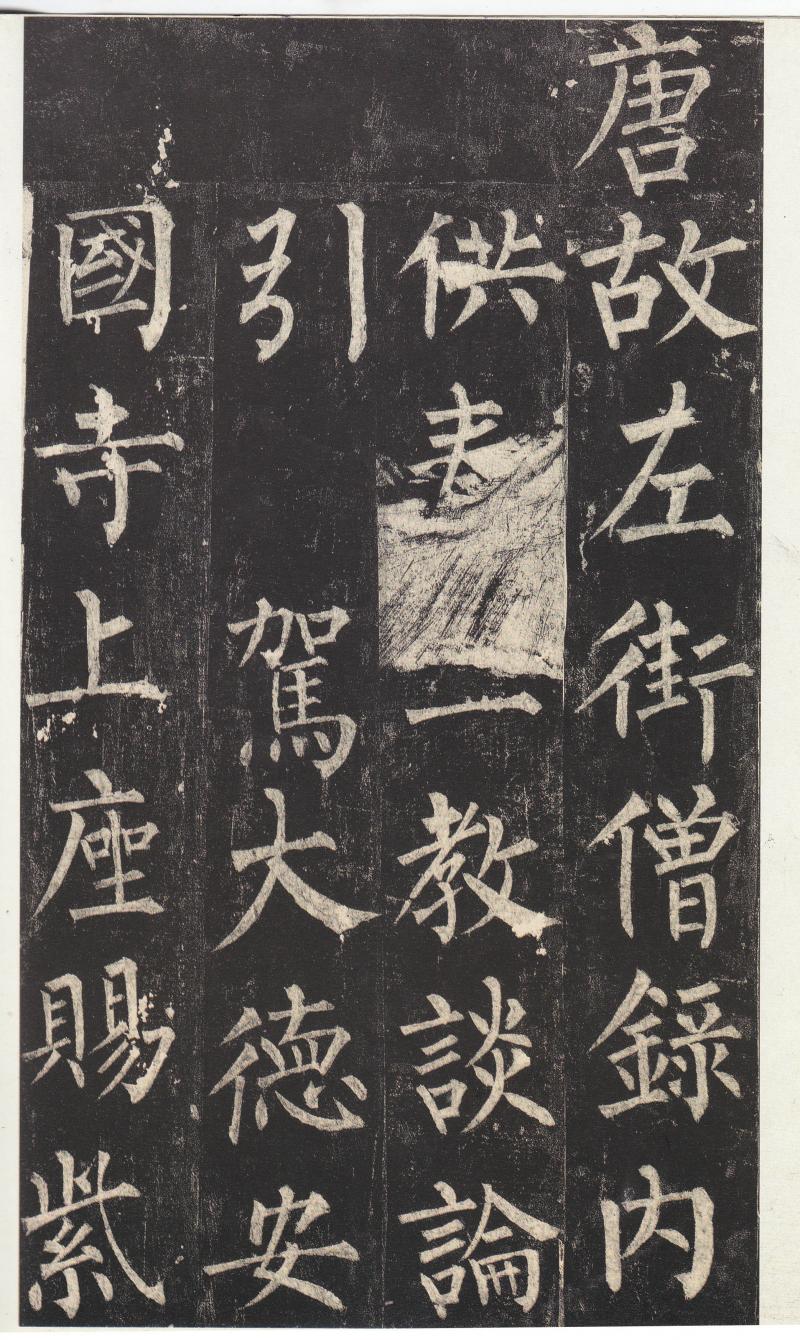 唐故左街僧錄內
供奉一教談論
引駕大德安
國寺上座賜紫